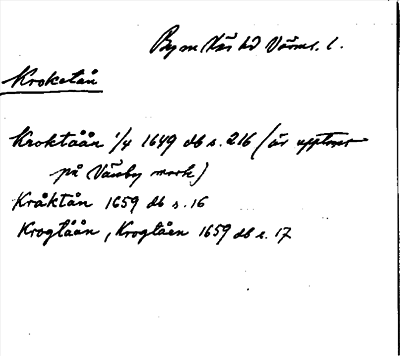 By m Näs hd Värml. l.
Kroketån
Kroktåån 1/4 1649 db s. 216 (är
på Väsby mark)
Kråktån 1659 db s. 16
Krogtåån, Krogtåen 1659 db s. 17